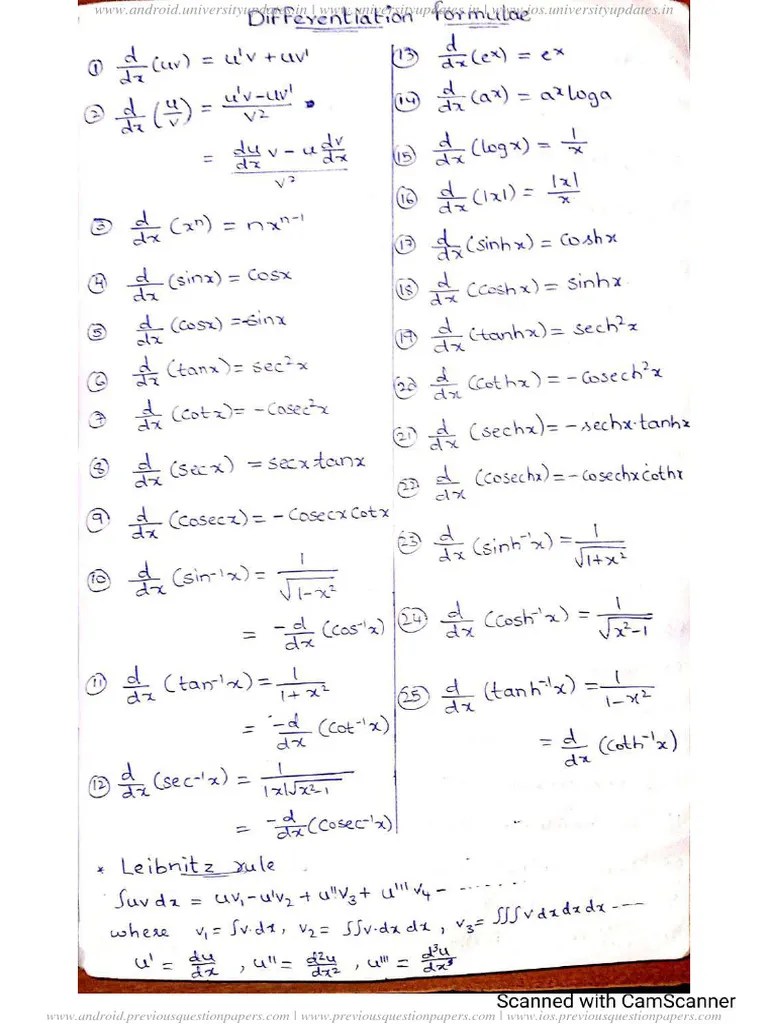 www.android.universityupdates.in | www.universityupdates.in | www.ios.universityupdates.in
Differentiation formulae
① d/dx (uv) = u'v + uv'
② d/dx (u/v) = u'v-uv' / v²
= du/dx v - u dv/dx / v²
③ d/dx (xⁿ) = nxⁿ⁻¹
④ d/dx (sinx) = cosx
⑤ d/dx (cosx) = -sinx
⑥ d/dx (tanx) = sec²x
⑦ d/dx (cotx) = -cosec²x
⑧ d/dx (secx) = secx tanx
⑨ d/dx (cosecx) = -cosecx cotx
⑩ d/dx (sin⁻¹x) = 1/√1-x²
= -d/dx (cos⁻¹x)
⑪ d/dx (tan⁻¹x) = 1/1+x²
= -d/dx (cot⁻¹x)
⑫ d/dx (sec⁻¹x) = 1/|x|√x²-1
= -d/dx (cosec⁻¹x)
⑬ d/dx (eˣ) = eˣ
⑭ d/dx (aˣ) = aˣ loga
⑮ d/dx (logx) = 1/x
⑯ d/dx (|x|) = |x|/x
⑰ d/dx (sinhx) = coshx
⑱ d/dx (coshx) = sinhx
⑲ d/dx (tanhx) = sech²x
⑳ d/dx (cothx) = -cosech²x
㉑ d/dx (sechx) = -sechx·tanhx
㉒ d/dx (cosechx) = -cosechx cothx
㉓ d/dx (sinh⁻¹x) = 1/√1+x²
㉔ d/dx (cosh⁻¹x) = 1/√x²-1
㉕ d/dx (tanh⁻¹x) = 1/1-x²
= d/dx (coth⁻¹x)
* Leibnitz rule
∫uv dx = uv₁ - u'v₂ + u''v₃ + u'''v₄ - ------
where v₁ = ∫v·dx, v₂ = ∫∫v·dx dx, v₃ = ∫∫∫v dx dx dx ----
u' = du/dx, u'' = d²u/dx², u''' = d³u/dx³
Scanned with CamScanner
www.android.previousquestionpapers.com | www.previousquestionpapers.com | www.ios.previousquestionpapers.com